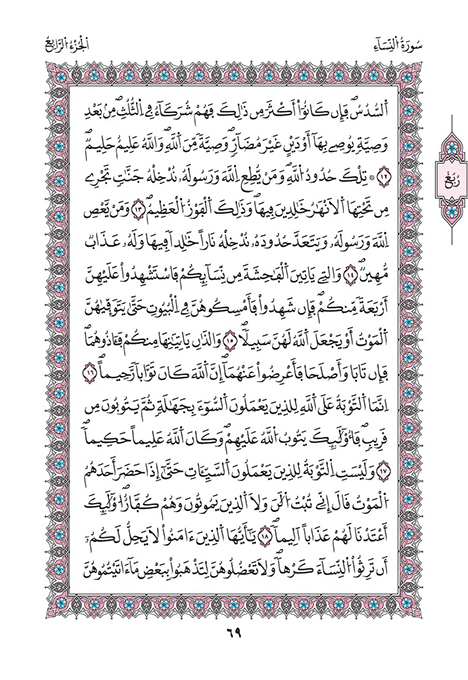 سُورَةُ اُلنِّسَآءِ
اُلْجُزْءُ اُلرَّابِعُ
اُلسُّدُسُ فَإِن كَانُوٓاْ أَكْثَرَ مِن ذَٰلِكَ فَهُمْ شُرَكَآءُ فِے اِلثُّلُثِ مِنۢ بَعْدِ
وَصِيَّةٖ يُوصِے بِهَآ أَوْ دَيْنٍ غَيْرَ مُضَآرّٖ وَصِيَّةٗ مِّنَ اَللَّهِ وَاللَّهُ عَلِيمٌ حَلِيمٞ
١٢ ۞ تِلْكَ حُدُودُ اُللَّهِ وَمَنْ يُّطِعِ اِللَّهَ وَرَسُولَهُۥ نُدْخِلْهُ جَنَّٰتٖ تَجْرِے
مِن تَحْتِهَا اَلَانْهَٰرُ خَٰلِدِينَ فِيهَا وَذَٰلِكَ اَلْفَوْزُ اُلْعَظِيمُ ١٣ وَمَنْ يَّعْصِ
اِللَّهَ وَرَسُولَهُۥ وَيَتَعَدَّ حُدُودَهُۥ نُدْخِلْهُ نَاراً خَٰلِداٗ فِيهَا وَلَهُۥ عَذَابٞ
مُّهِينٞ ١٤ وَالَّٰتِے يَاتِينَ اَلْفَٰحِشَةَ مِن نِّسَآئِكُمْ فَاسْتَشْهِدُواْ عَلَيْهِنَّ
أَرْبَعَةٗ مِّنكُمْ فَإِن شَهِدُواْ فَأَمْسِكُوهُنَّ فِے اِلْبُيُوتِ حَتَّىٰ يَتَوَفَّيٰهُنَّ
اَلْمَوْتُ أَوْ يَجْعَلَ اَللَّهُ لَهُنَّ سَبِيلاٗ ١٥ وَالذَٰنِ يَاتِيَٰنِهَا مِنكُمْ فَـَٔاذُوهُمَا
فَإِن تَابَا وَأَصْلَحَا فَأَعْرِضُواْ عَنْهُمَآ إِنَّ اَللَّهَ كَانَ تَوَّاباٗ رَّحِيماً ١٦
اِنَّمَا اَلتَّوْبَةُ عَلَى اَللَّهِ لِلذِينَ يَعْمَلُونَ اَلسُّوٓءَ بِجَهَٰلَةٖ ثُمَّ يَتُوبُونَ مِن
قَرِيبٖ فَأُوْلَٰٓئِكَ يَتُوبُ اُللَّهُ عَلَيْهِمْ وَكَانَ اَللَّهُ عَلِيماً حَكِيماٗ
١٧ وَلَيْسَتِ اِلتَّوْبَةُ لِلذِينَ يَعْمَلُونَ اَلسَّيِّـَٔاتِ حَتَّىٰٓ إِذَا حَضَرَ أَحَدَهُمُ
اُلْمَوْتُ قَالَ إِنِّے تُبْتُ اُلَٰٔنَ وَلَا اَلذِينَ يَمُوتُونَ وَهُمْ كُفَّارٌ اُوْلَٰٓئِكَ
أَعْتَدْنَا لَهُمْ عَذَاباً اَلِيماٗ ١٨ يَٰٓأَيُّهَا اَلذِينَ ءَامَنُواْ لَا يَحِلُّ لَكُمُۥٓ
أَن تَرِثُواْ اُلنِّسَآءَ كَرْهاٗ وَلَا تَعْضُلُوهُنَّ لِتَذْهَبُواْ بِبَعْضِ مَآ ءَاتَيْتُمُوهُنَّ
رُبُع
٦٩